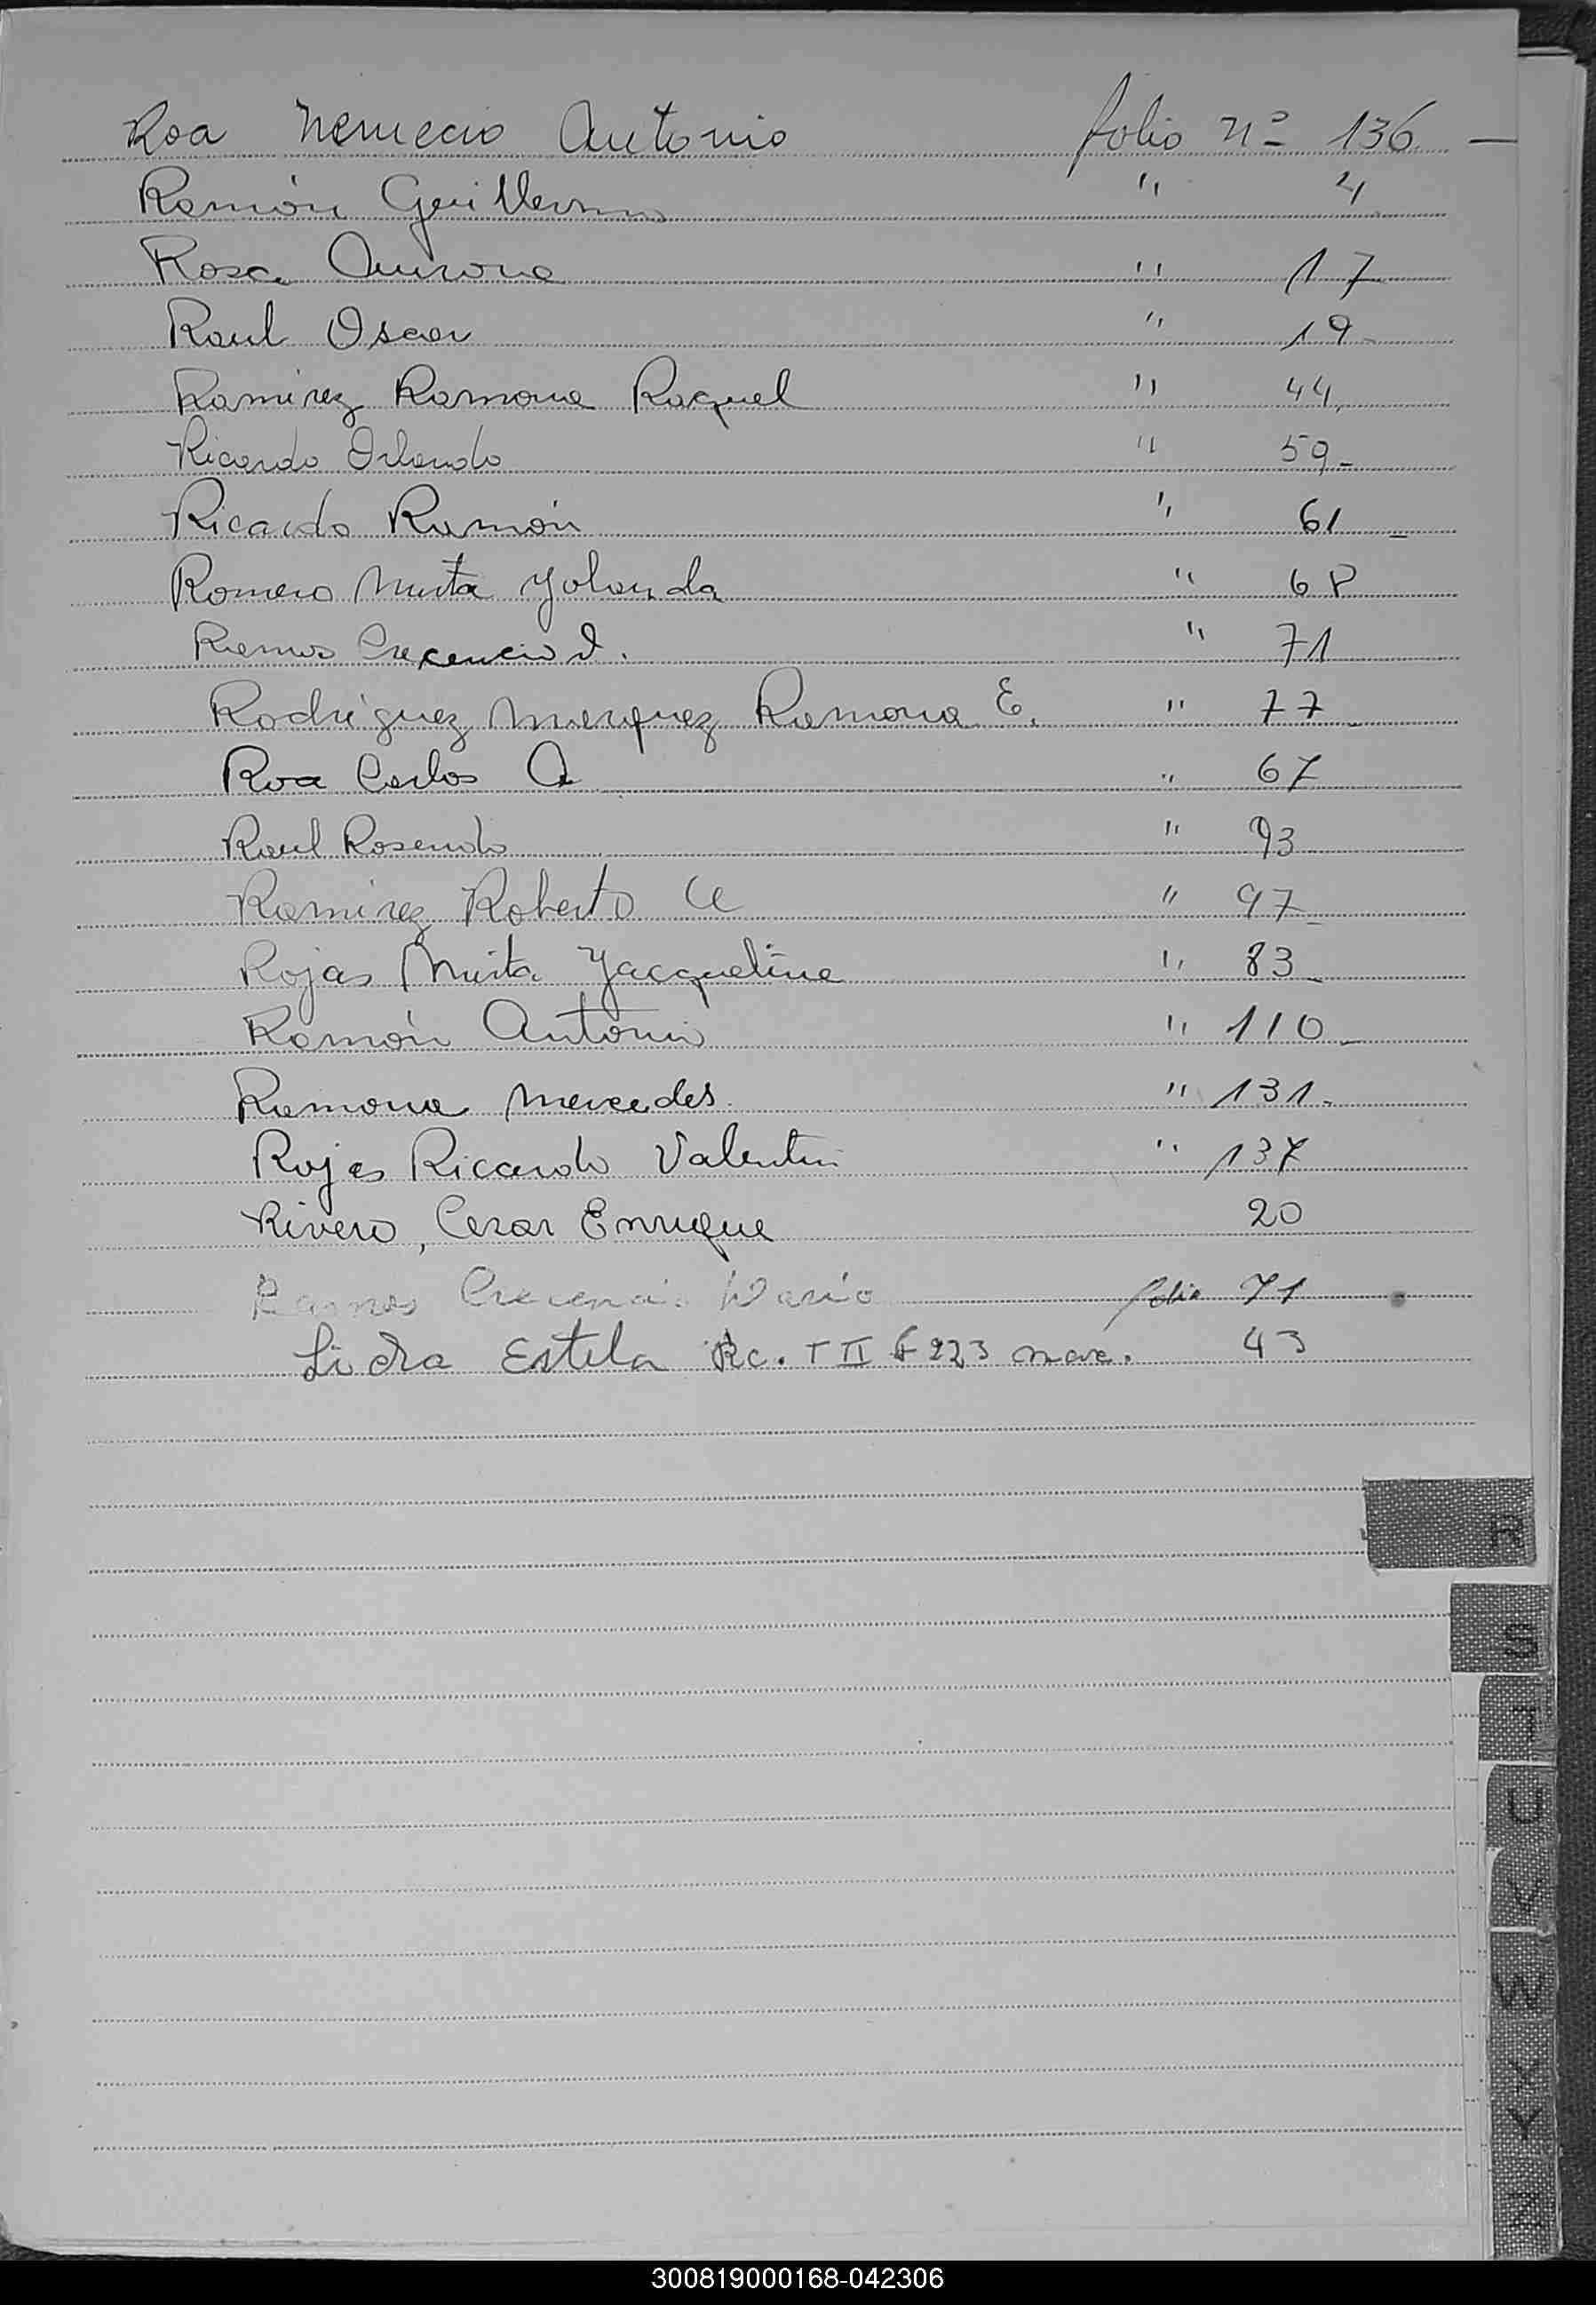 Roa Nemecio Antonio folio nº 136 —
Ramón Guillermo " 4
Rosa Aurora " 17
Raul Oscar " 19 -
Ramirez Ramona Raquel " 44
Ricardo Orlando " 59 -
Ricardo Ramón " 61 -
Romero Mirta Yolanda " 68
Ramos Crecencio D. " 71
Rodriguez Marquez Ramona E. " 77 -
Roa Carlos A " 67
Raul Rosendo " 93
Ramirez Roberto A " 97 -
Rojas Mirta Yacqueline " 83 -
Ramón Antonio " 110 -
Ramona Mercedes " 131 -
Rojas Ricardo Valentin " 137
Rivero, Cesar Enrique 20
Ramos Crecenci. Dario folio 71
Lidia Estela Rc. T II F 223 nac. 43
R
S
T
U
V
W
X
Y
Z
300819000168-042306